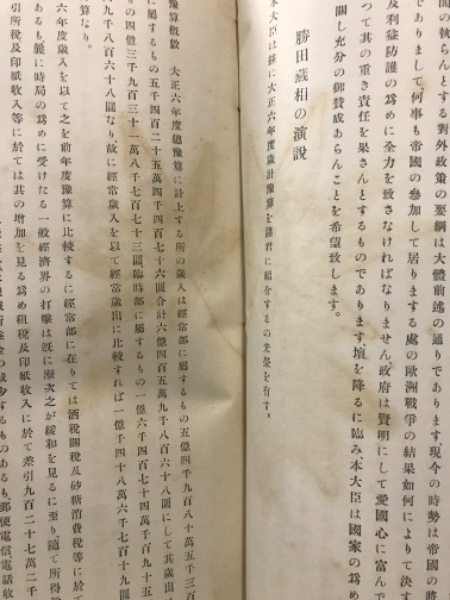 閣の執らんとする對外政策の要綱は大體前述の通りであります、現今の時勢は帝國の將
でありまして、何事も帝國の參加して居りまする處の歐洲戰爭の結果如何によりて決す
及利益防護の爲めに全力を致さなければなりません、政府は賢明にして愛國心に富んで
つて其の重き責任を果さんとするものであります、壇を降るに臨み、本大臣は國家の爲め
關し充分の御贊成あらんことを希望致します。
勝田藏相の演說
本大臣は玆に大正六年度歲計豫算を諸君に紹介するの光榮を有す。
豫算概數 大正六年度總豫算に計上する所の歲入は經常部に屬するもの五億四千九百五萬五千三百
に屬するもの五千四百二十五萬四千四百六十六圓合計六億四百五萬九千八百六十八圓にして其歲出
の四億三千九百三十一萬八千七百七十三圓、臨時部に屬するもの一億六千四百七十四萬千百九十五
九千八百六十八圓なり故に經常歲入を以て經常歲出に比較すれば一億千四十八萬六千七百十九圓
算なり。
六年度歲入を以て之を前年度豫算に比較するに經常部に在りては酒稅關稅及砂糖消費稅等に於て
あるも、曩に時局の爲めに受けたる一般經濟界の打擊は旣に漸次之が緩和を見るに至り、隨て所得稅
引所稅及印紙收入等に於ては其の增加を見る爲め租稅及印紙收入に於て差引九百二十七萬二千
するものあるも、郵便電信電話收